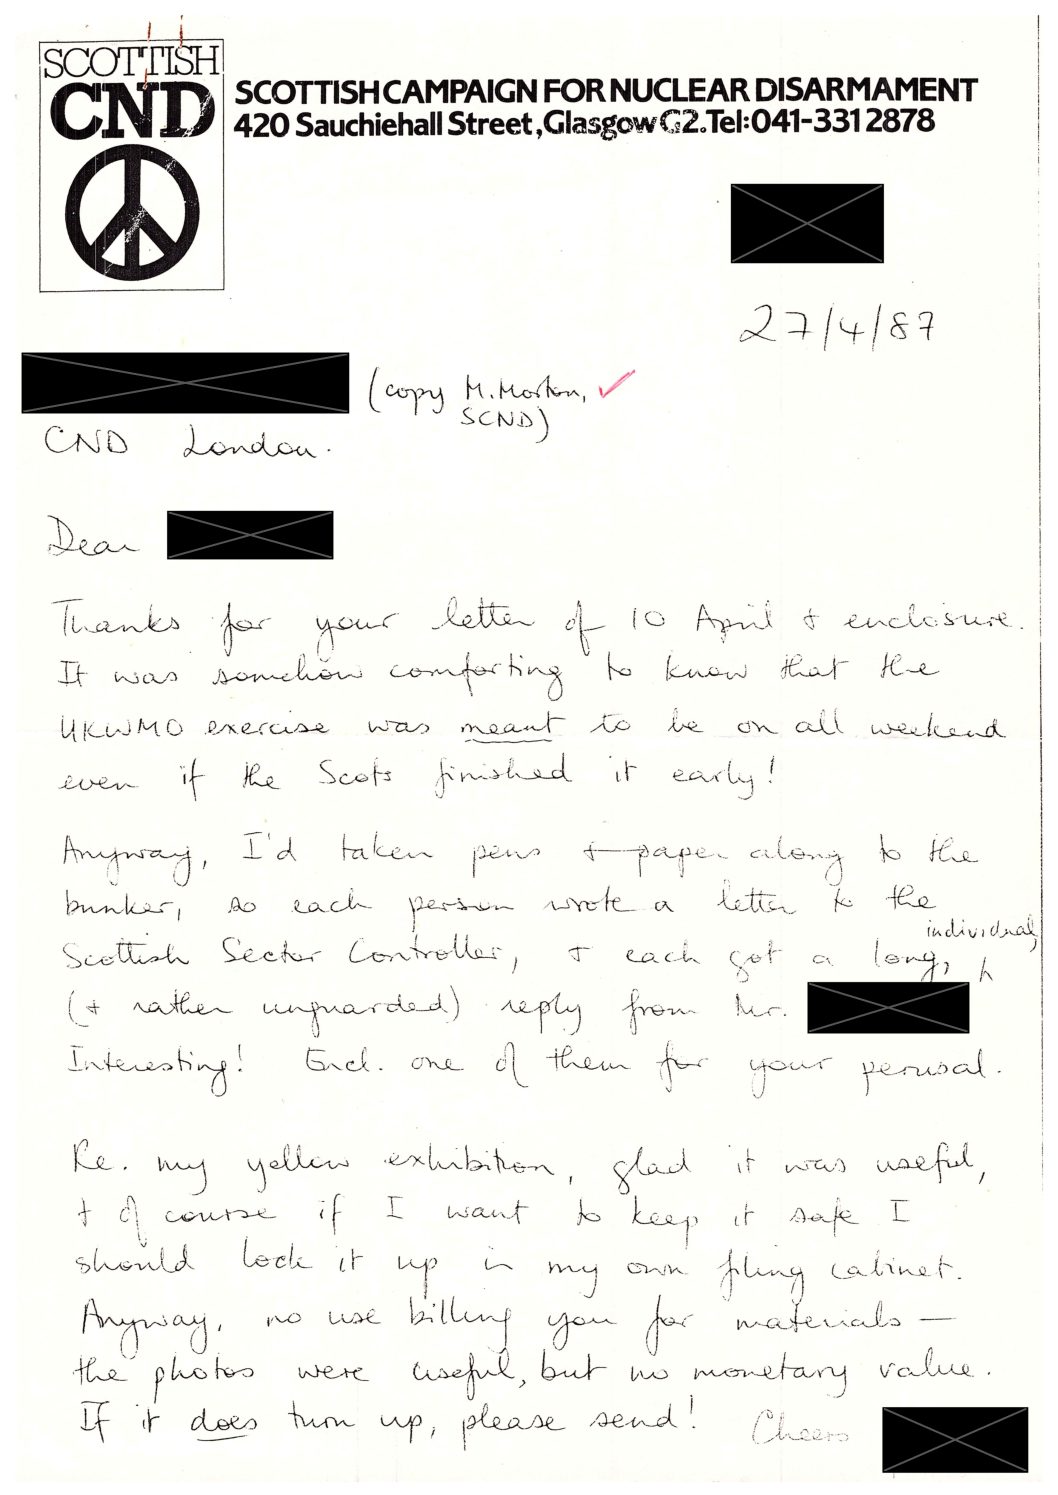 SCOTTISH
CND
SCOTTISH CAMPAIGN FOR NUCLEAR DISARMAMENT
420 Sauchiehall Street, Glasgow G2. Tel: 041-331 2878
27/4/87
(copy M. Morton, ✓
SCND)
CND London.
Dear
Thanks for your letter of 10 April + enclosure.
It was somehow comforting to know that the
UKWMO exercise was meant to be on all weekend
even if the Scots finished it early!
Anyway, I'd taken pens + paper along to the
bunker, so each person wrote a letter to the
Scottish Sector Controller, + each got a long, individual,
(+ rather unguarded) reply from Mr.
Interesting! Encl. one of them for your perusal.
Re. my yellow exhibition, glad it was useful,
+ of course if I want to keep it safe I
should lock it up in my own filing cabinet.
Anyway, no use billing you for materials –
the photos were useful, but no monetary value.
If it does turn up, please send! Cheers